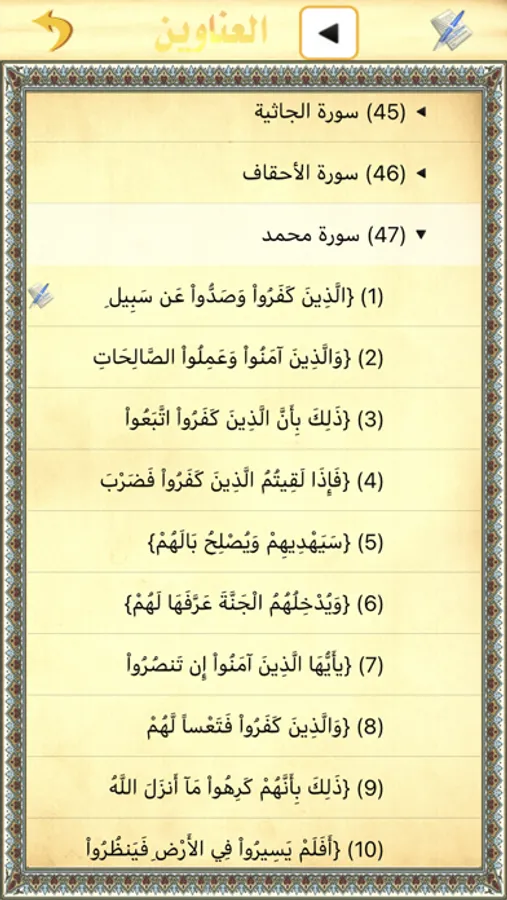 العناوين
(45) سورة الجاثية
(46) سورة الأحقاف
(47) سورة محمد
(1) {الَّذِينَ كَفَرُواْ وَصَدُّواْ عَن سَبِيلِ
(2) {وَالَّذِينَ آمَنُواْ وَعَمِلُواْ الصَّالِحَاتِ
(3) {ذَلِكَ بِأَنَّ الَّذِينَ كَفَرُواْ اتَّبَعُواْ
(4) {فَإِذَا لَقِيتُمُ الَّذِينَ كَفَرُواْ فَضَرْبَ
(5) {سَيَهْدِيهِمْ وَيُصْلِحُ بَالَهُمْ}
(6) {وَيُدْخِلُهُمُ الْجَنَّةَ عَرَّفَهَا لَهُمْ}
(7) {يأَيُّهَا الَّذِينَ آمَنُواْ إِن تَنصُرُواْ
(8) {وَالَّذِينَ كَفَرُواْ فَتَعْساً لَّهُمْ
(9) {ذَلِكَ بِأَنَّهُمْ كَرِهُواْ مَآ أَنزَلَ اللَّهُ
(10) {أَفَلَمْ يَسِيرُواْ فِي الأَرْضِ فَيَنظُرُواْ